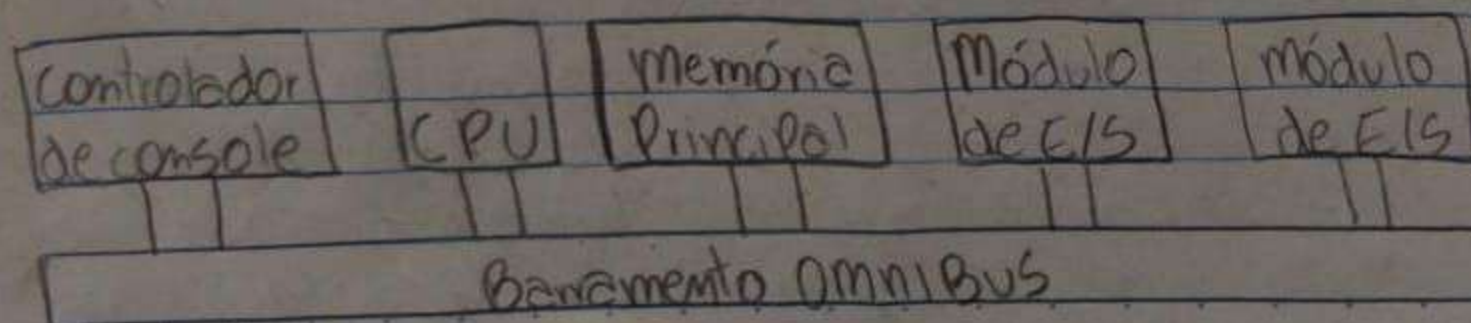 controlador
de console
CPU
Memória
Principal
Módulo
de E/S
Módulo
de E/S
Barramento OmniBUS